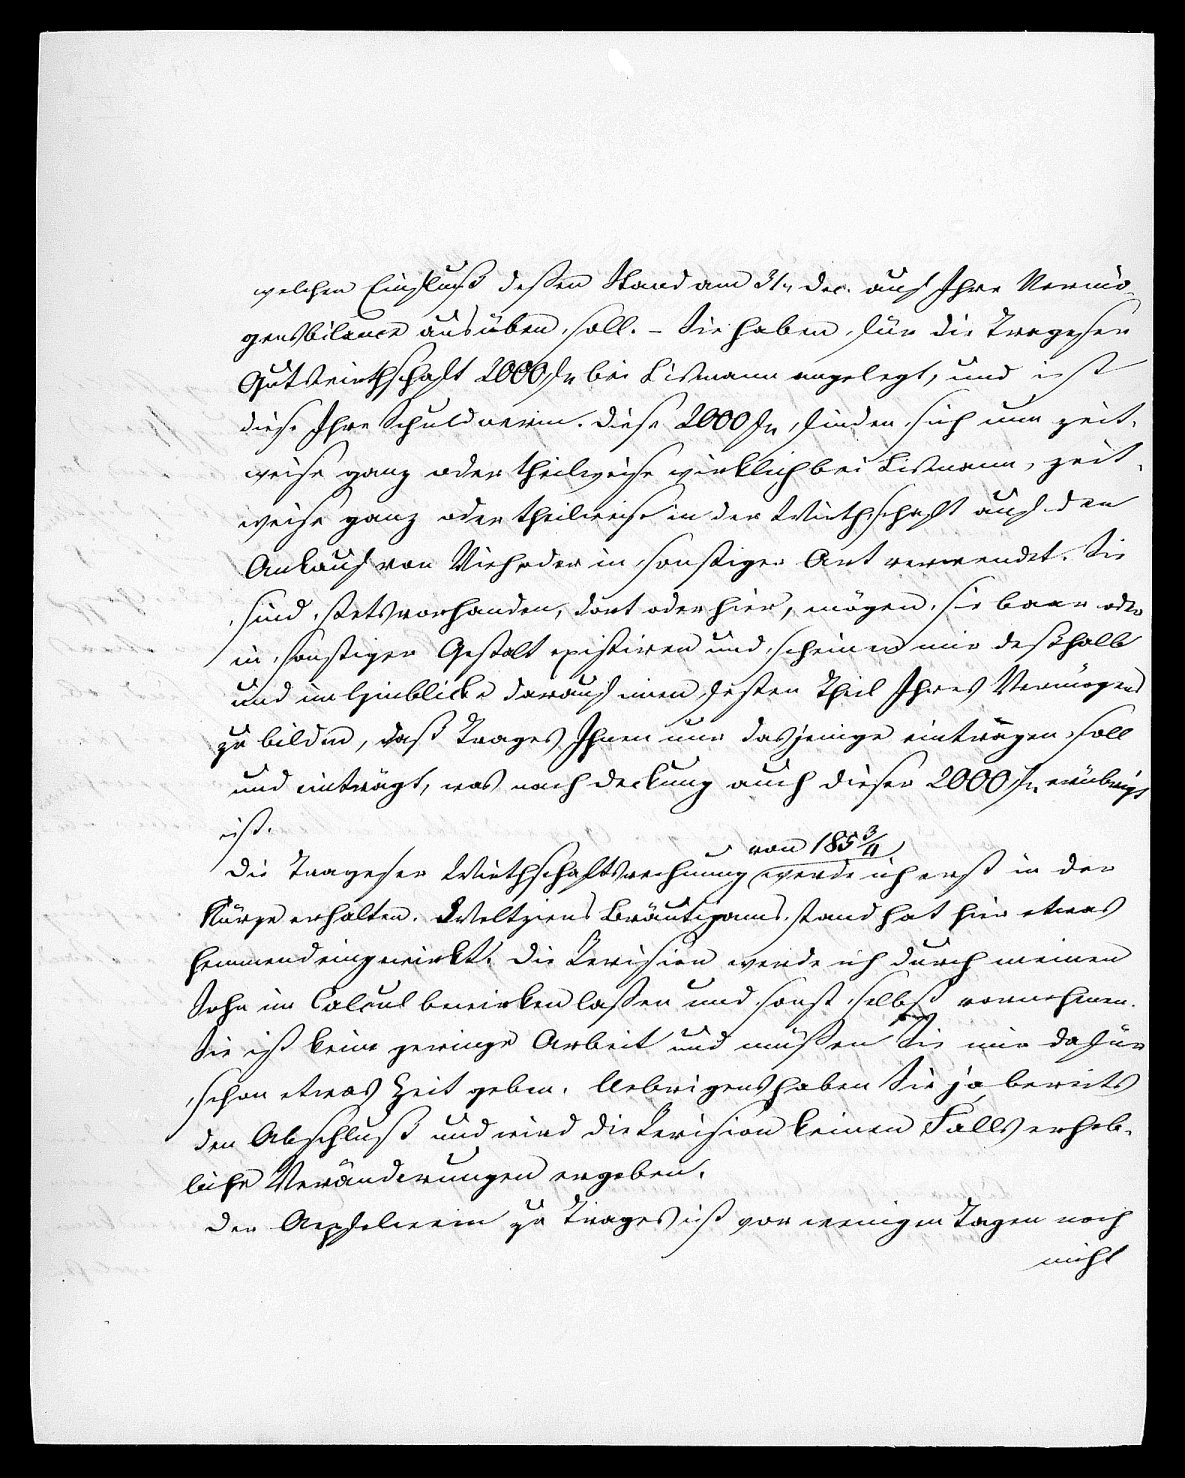 welchen Einfluß deßen Stand am 31n Dec. auf Ihre Vermö-
gensbilance ausüben soll. – Sie haben für die Trageser
Gutswirthschaft 2000 fr bei Lismann angelegt, und ist
diese Ihre Schuldnerin. Diese 2000 fr, finden sich nun zeit-
weise ganz oder theilweise wirklich bei Lismann, zeit-
weise ganz oder theilweise in der Wirthschaft auf den
Ankauf von Vieh oder in sonstiger Art verwendet. Sie
sind stets vorhanden, dort oder hier, mögen sie baar oder
in sonstiger Gestalt existiren und scheinen mir deßhalb
und im Hinblicke darauf einen festen Theil Ihres Vermögens
zu bilden, daß Trages Ihnen nur dasjenige einträgen soll
und einträgt, was nach Deckung auch dieser 2000 fr. erübrigt
ist.
von 185 3/4
Die Trageser Wirthschaftsrechnung werde ich erst in der
Kürze erhalten. Weltziens Bräutigamsstand hat hier etwas
hemmend eingewirkt. Die Revision werde ich durch meinen
Sohn im Calcul bewirken laßen und sonst selbst vornehmen.
Sie ist keine geringe Arbeit und müßen Sie mir dafür
schon etwas Zeit geben. Uebrigens haben Sie ja bereits
den Abschluß und wird die Revision keinen Falls erheb-
liche Veränderungen ergeben.
Der Aepfelwein zu Trages ist vor wenigen Tagen noch
nicht